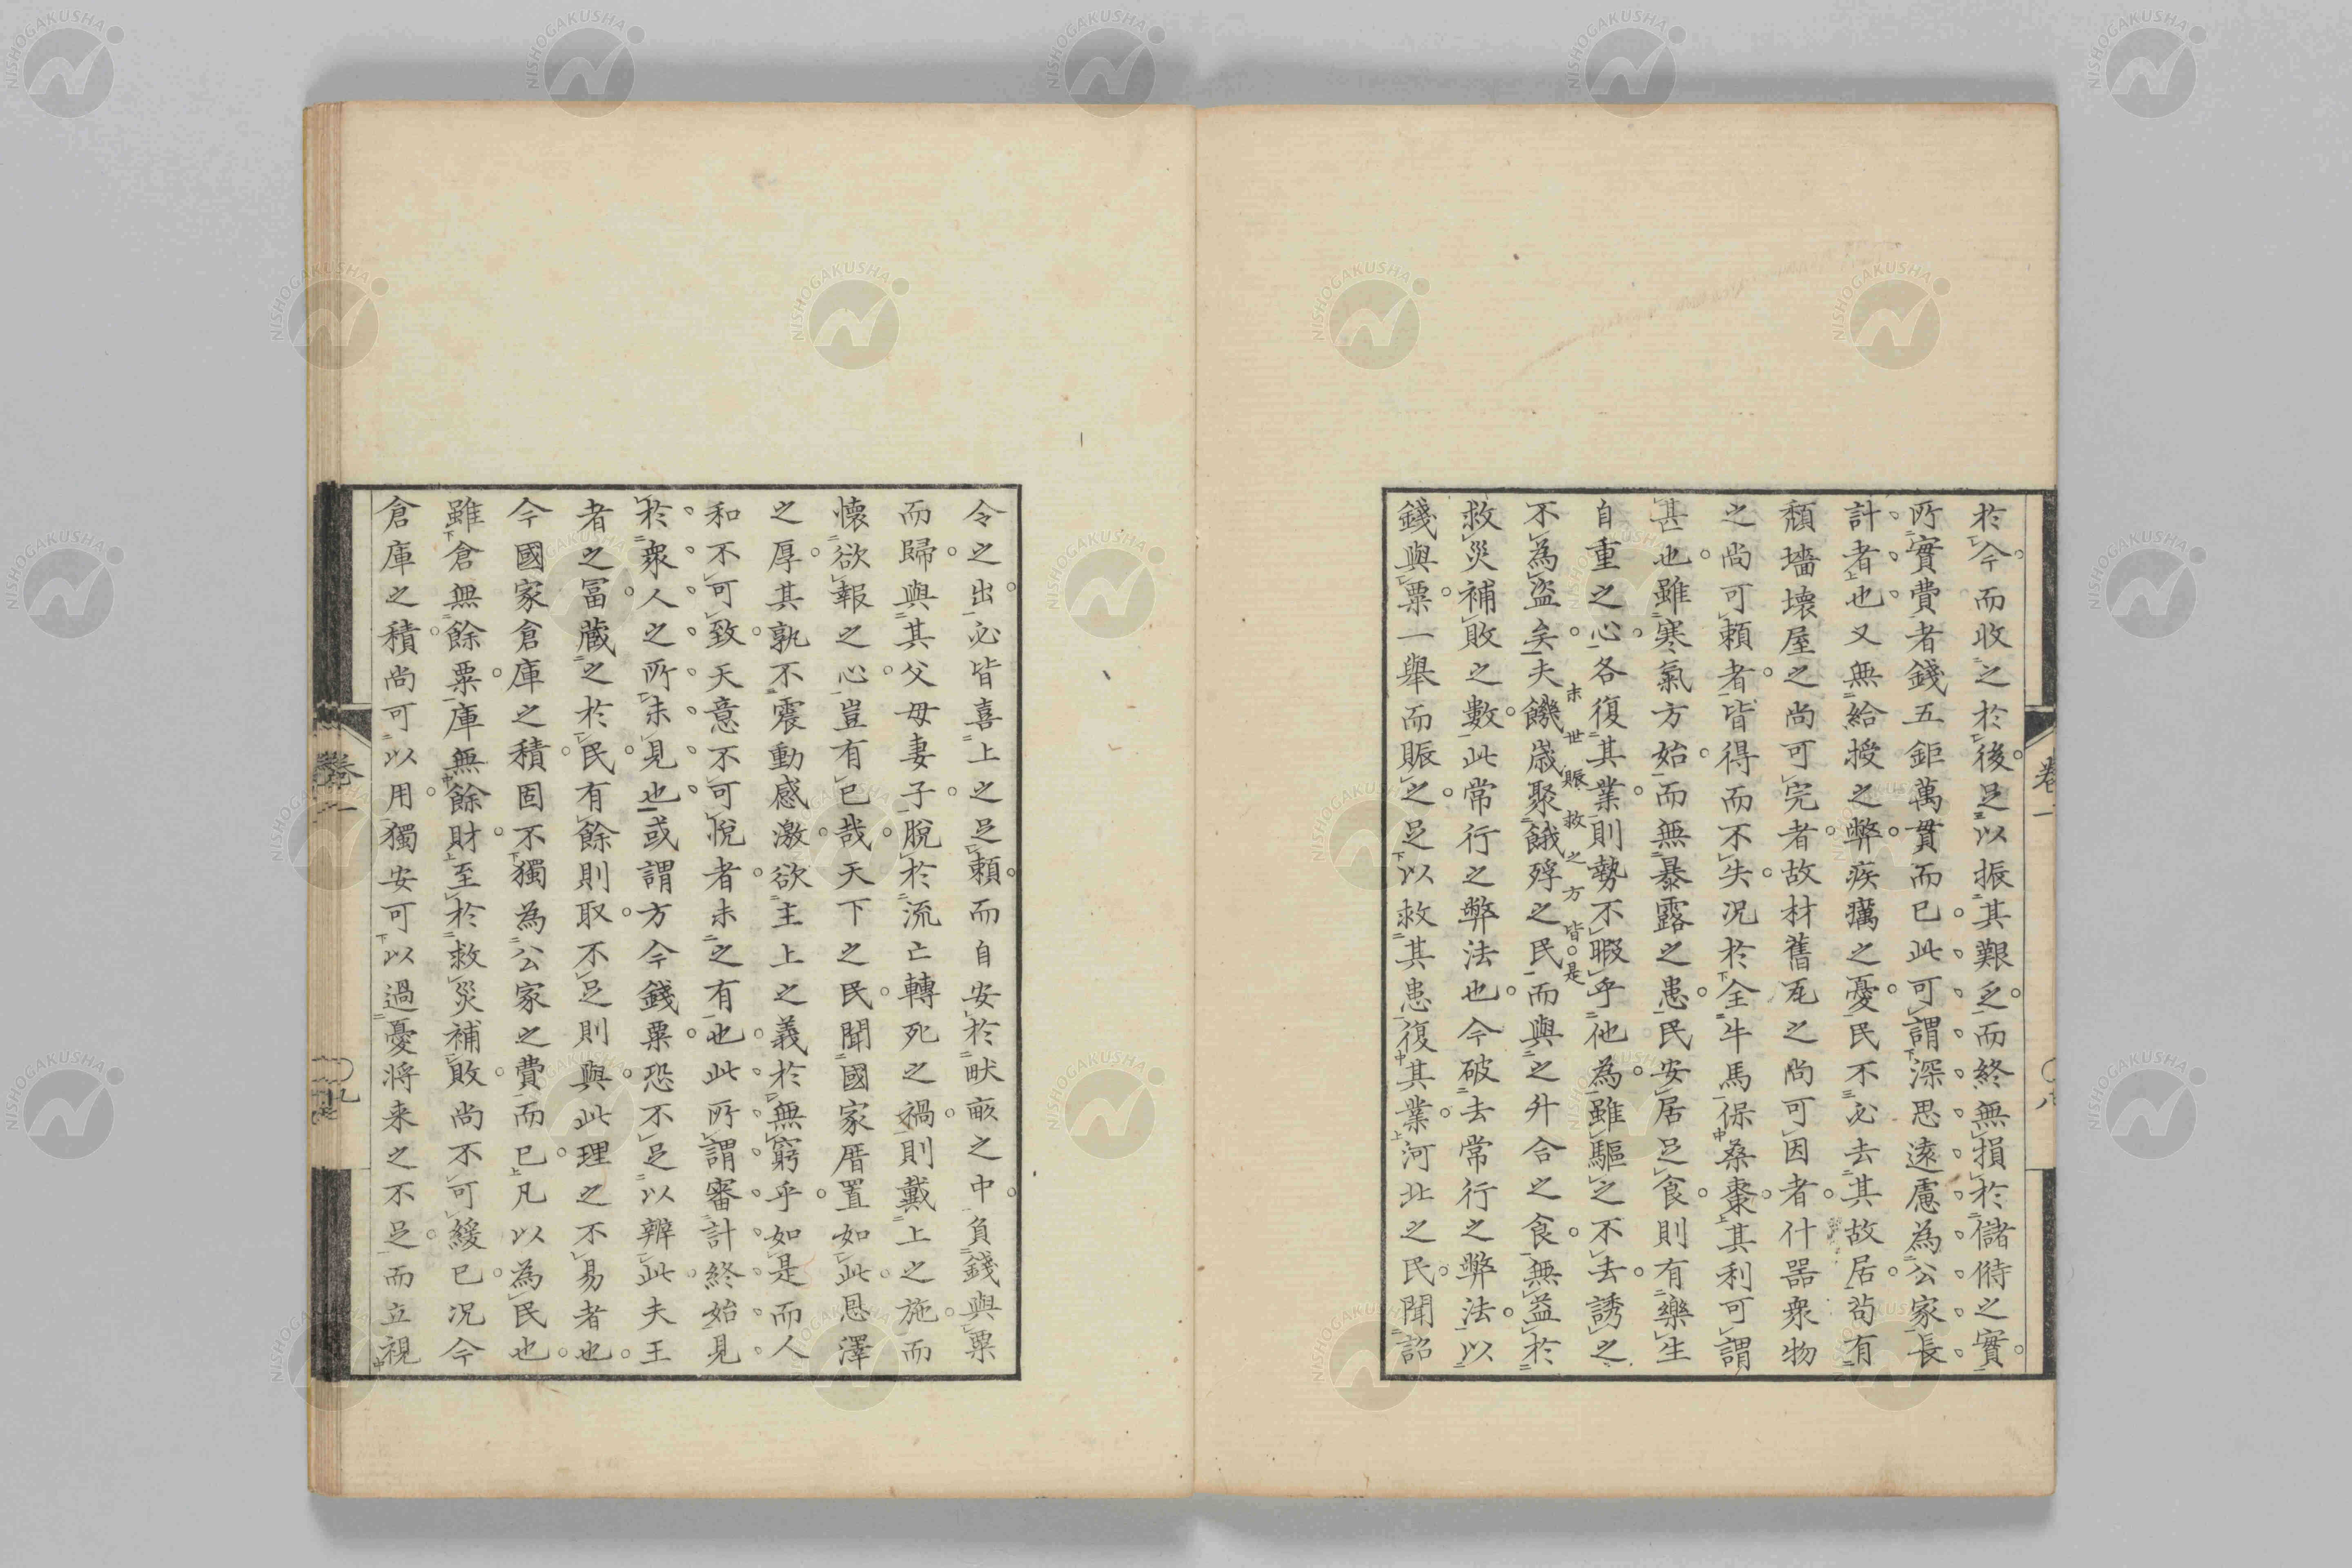 於今而收之於後足以振其艱乏而終無損於儲偫之實
所實費者錢五鉅萬貫而已此可謂深思遠慮為公家長
計者也又無給授之弊疾癘之憂民不必去其故居茍有
頹墻壞屋之尚可完者故材舊瓦之尚可因者什噐衆物
之尚可賴者皆得而不失况於全牛馬保桑棗其利可謂
甚也雖寒氣方始而無暴露之患民安居足食則有樂生
自重之心各復其業則勢不暇乎他為雖驅之不去誘之
不為盗矣夫饑歳聚餓殍之民而與之升合之食無益於
末世賑救之方皆是
救災補敗之數此常行之弊法也今破去常行之弊法以
錢與粟一舉而賑之足以救其患復其業河北之民聞詔
卷一
〇八
令之出必皆喜上之足頼而自安於畎畝之中負錢與粟
而歸與其父母妻子脱於流亡轉死之禍則戴上之施而
懷欲報之心豈有已哉天下之民聞國家厝置如此恩澤
之厚其孰不震動感激欲主上之義於無窮乎如是而人
和不可致天意不可悅者未之有也此所謂審計終始見
於衆人之所未見也或謂方今錢粟恐不足以辨此夫王
者之冨藏之於民有餘則取不足則與此理之不易者也
今國家倉庫之積固不獨為公家之費而已凡以為民也
雖倉無餘粟庫無餘財至於救災補敗尚不可緩已况今
倉庫之積尚可以用獨安可以過憂将来之不足而立視
卷一
〇九
NISHOGAKUSHA